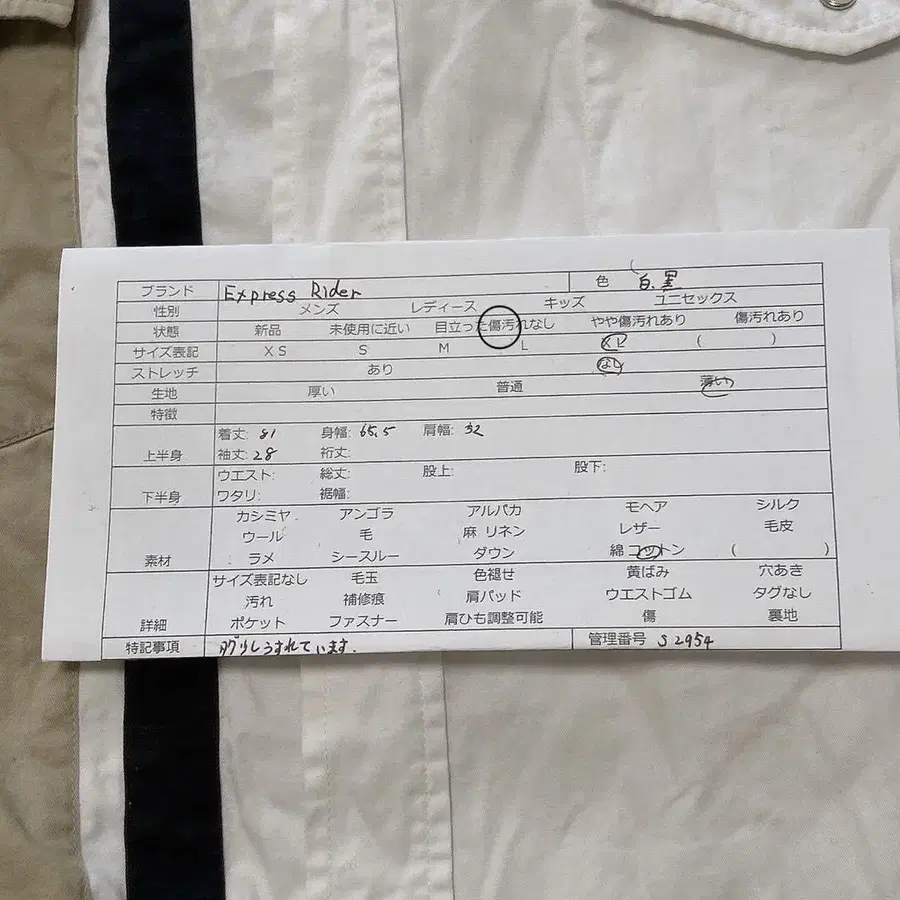 ブランド Express Rider 色 白.黒
性別 メンズ レディース キッズ ユニセックス
状態 新品 未使用に近い 目立った傷汚れなし やや傷汚れあり 傷汚れあり
サイズ表記 XS S M L XL ( )
ストレッチ あり なし
生地 厚い 普通 薄い
特徴
上半身 着丈: 81 身幅: 65.5 肩幅: 32
袖丈: 28 裄丈:
下半身 ウエスト: 総丈: 股上: 股下:
ワタリ: 裾幅:
素材 カシミヤ アンゴラ アルパカ モヘア シルク
ウール 毛 麻 リネン レザー 毛皮
ラメ シースルー ダウン 綿 コットン ( )
詳細 サイズ表記なし 毛玉 色褪せ 黄ばみ 穴あき
汚れ 補修痕 肩パッド ウエストゴム タグなし
ポケット ファスナー 肩ひも調整可能 傷 裏地
特記事項 うすれています. 管理番号 S2954